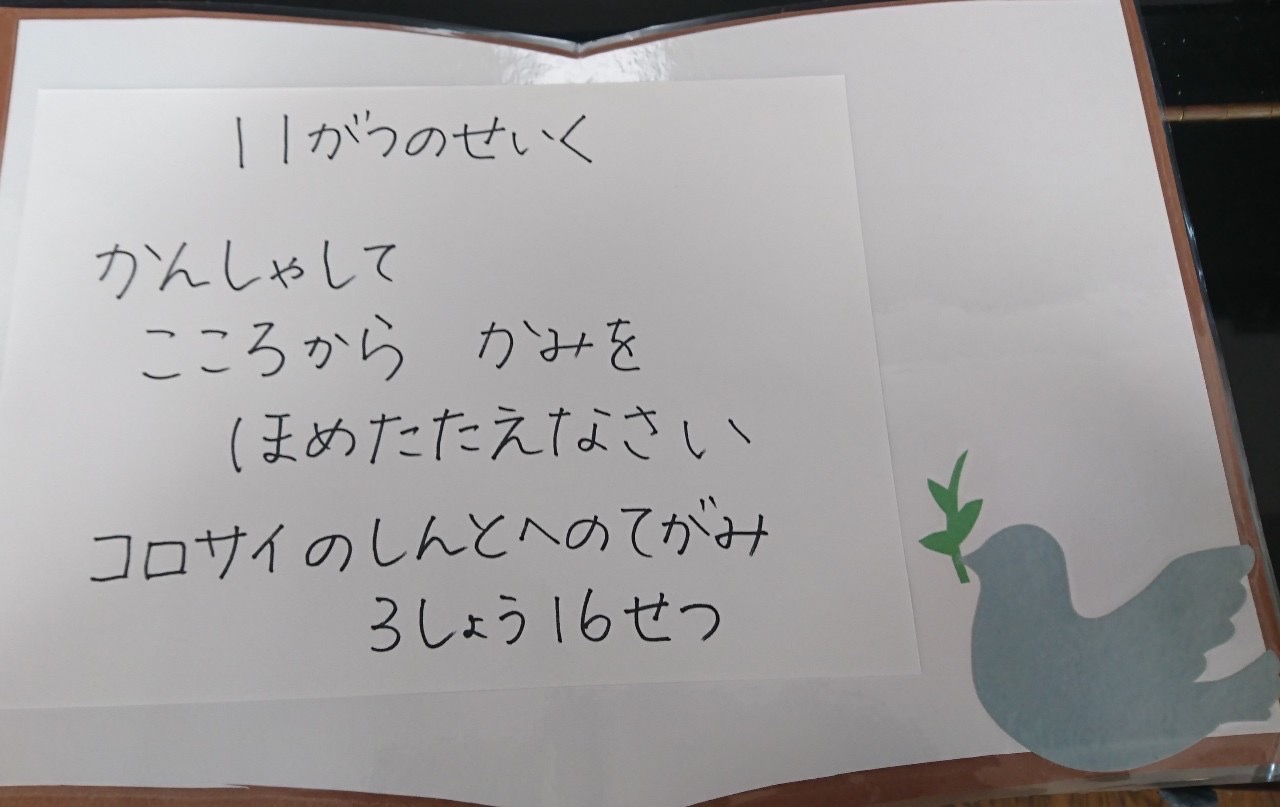 11がつのせいく
かんしゃして
こころから かみを
ほめたたえなさい
コロサイのしんとへのてがみ
3しょう16せつ